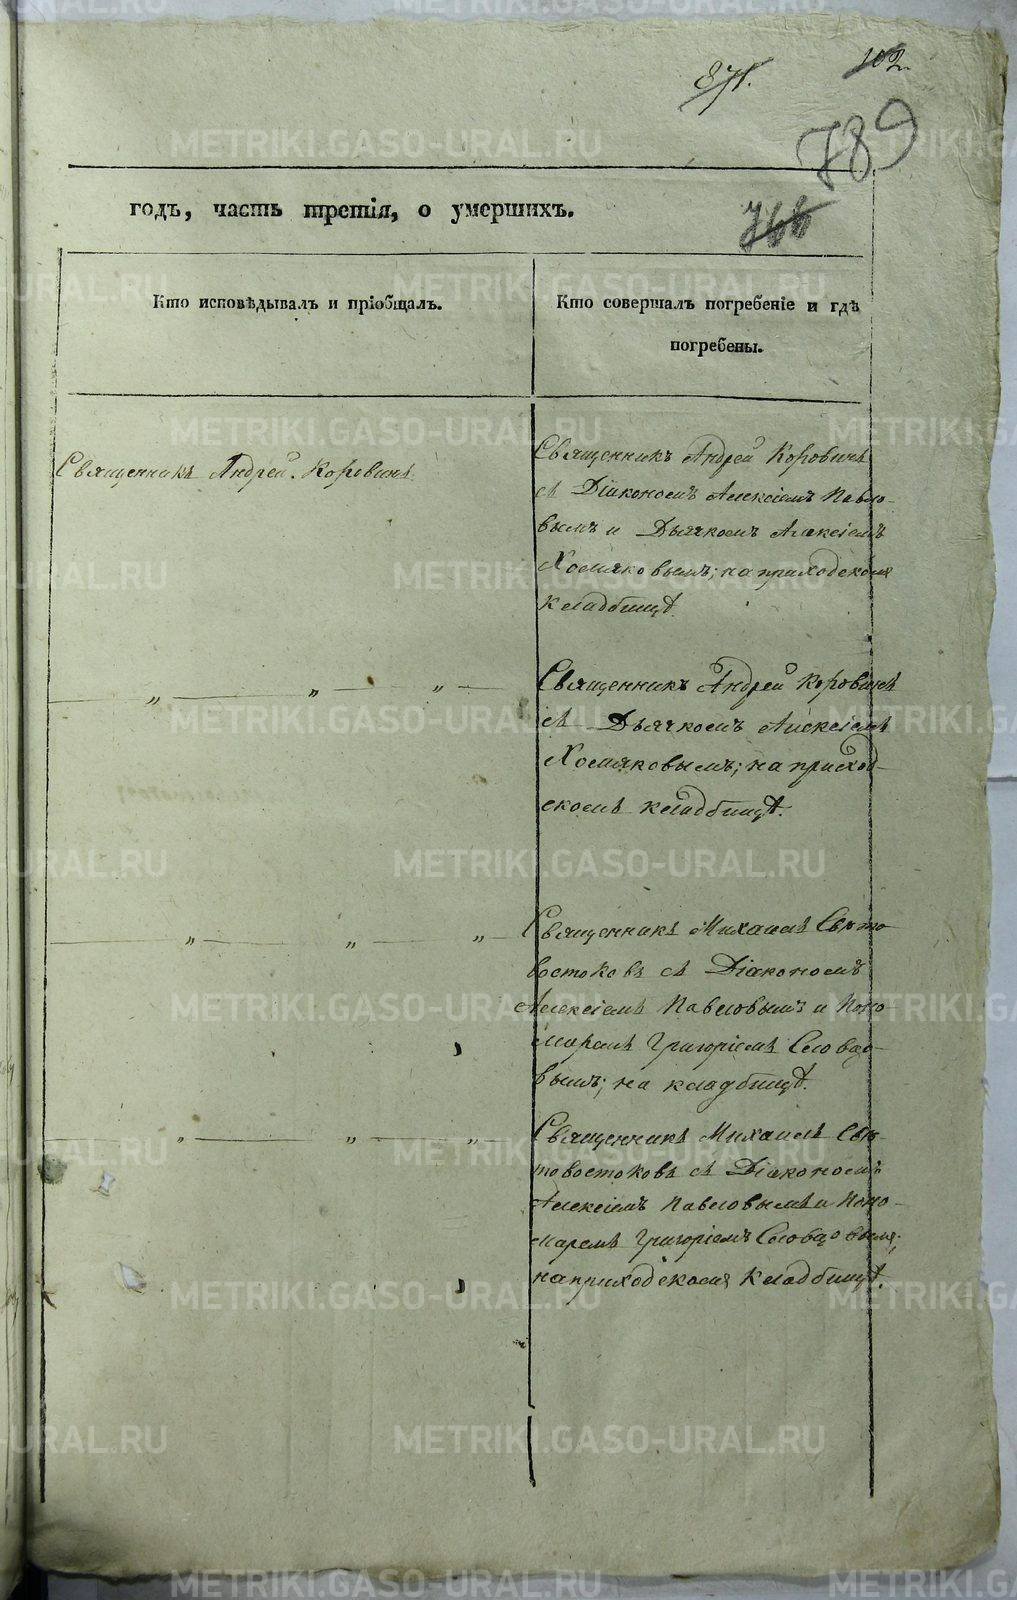 871.
102.
789
766
годъ, часть третія, о умершихъ.
Кто исповѣдывалъ и пріобщалъ.
Кто совершалъ погребеніе и гдѣ
погребены.
Священникъ Андрей Коровинъ
Священникъ Андрей Коровинъ
съ Діакономъ Алексіемъ Павло-
вымъ и Дьячкомъ Алексіемъ
Хомяковымъ; на приходскомъ
кладбищѣ.
„ „ „
Священникъ Андрей Коровинъ
съ Дьячкомъ Алексіемъ
Хомяковымъ; на приход-
скомъ кладбищѣ.
„ „ „
Священникъ Михаилъ Свѣто-
востоковъ съ Діакономъ
Алексіемъ Павловымъ и Поно-
маремъ Григоріемъ Словцо-
вымъ; на кладбищѣ.
„ „ „
Священникъ Михаилъ Свѣ-
товостоковъ съ Діакономъ
Алексіемъ Павловымъ и Поно-
маремъ Григоріемъ Словцовымъ;
на приходскомъ кладбищѣ.
METRIKI.GASO-URAL.RU